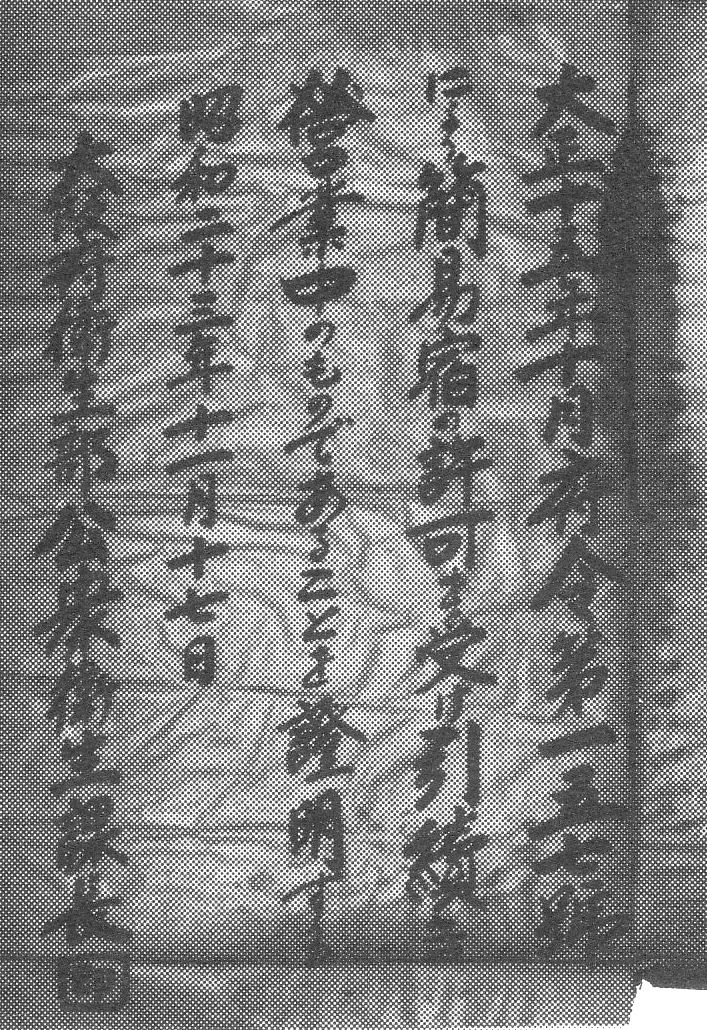 大正十五年十月府令第一五七號
による簡易宿の許可を受け引續き
營業中のものであることを證明す
昭和二十三年十一月十七日
大阪府衛生部公衆衛生課長